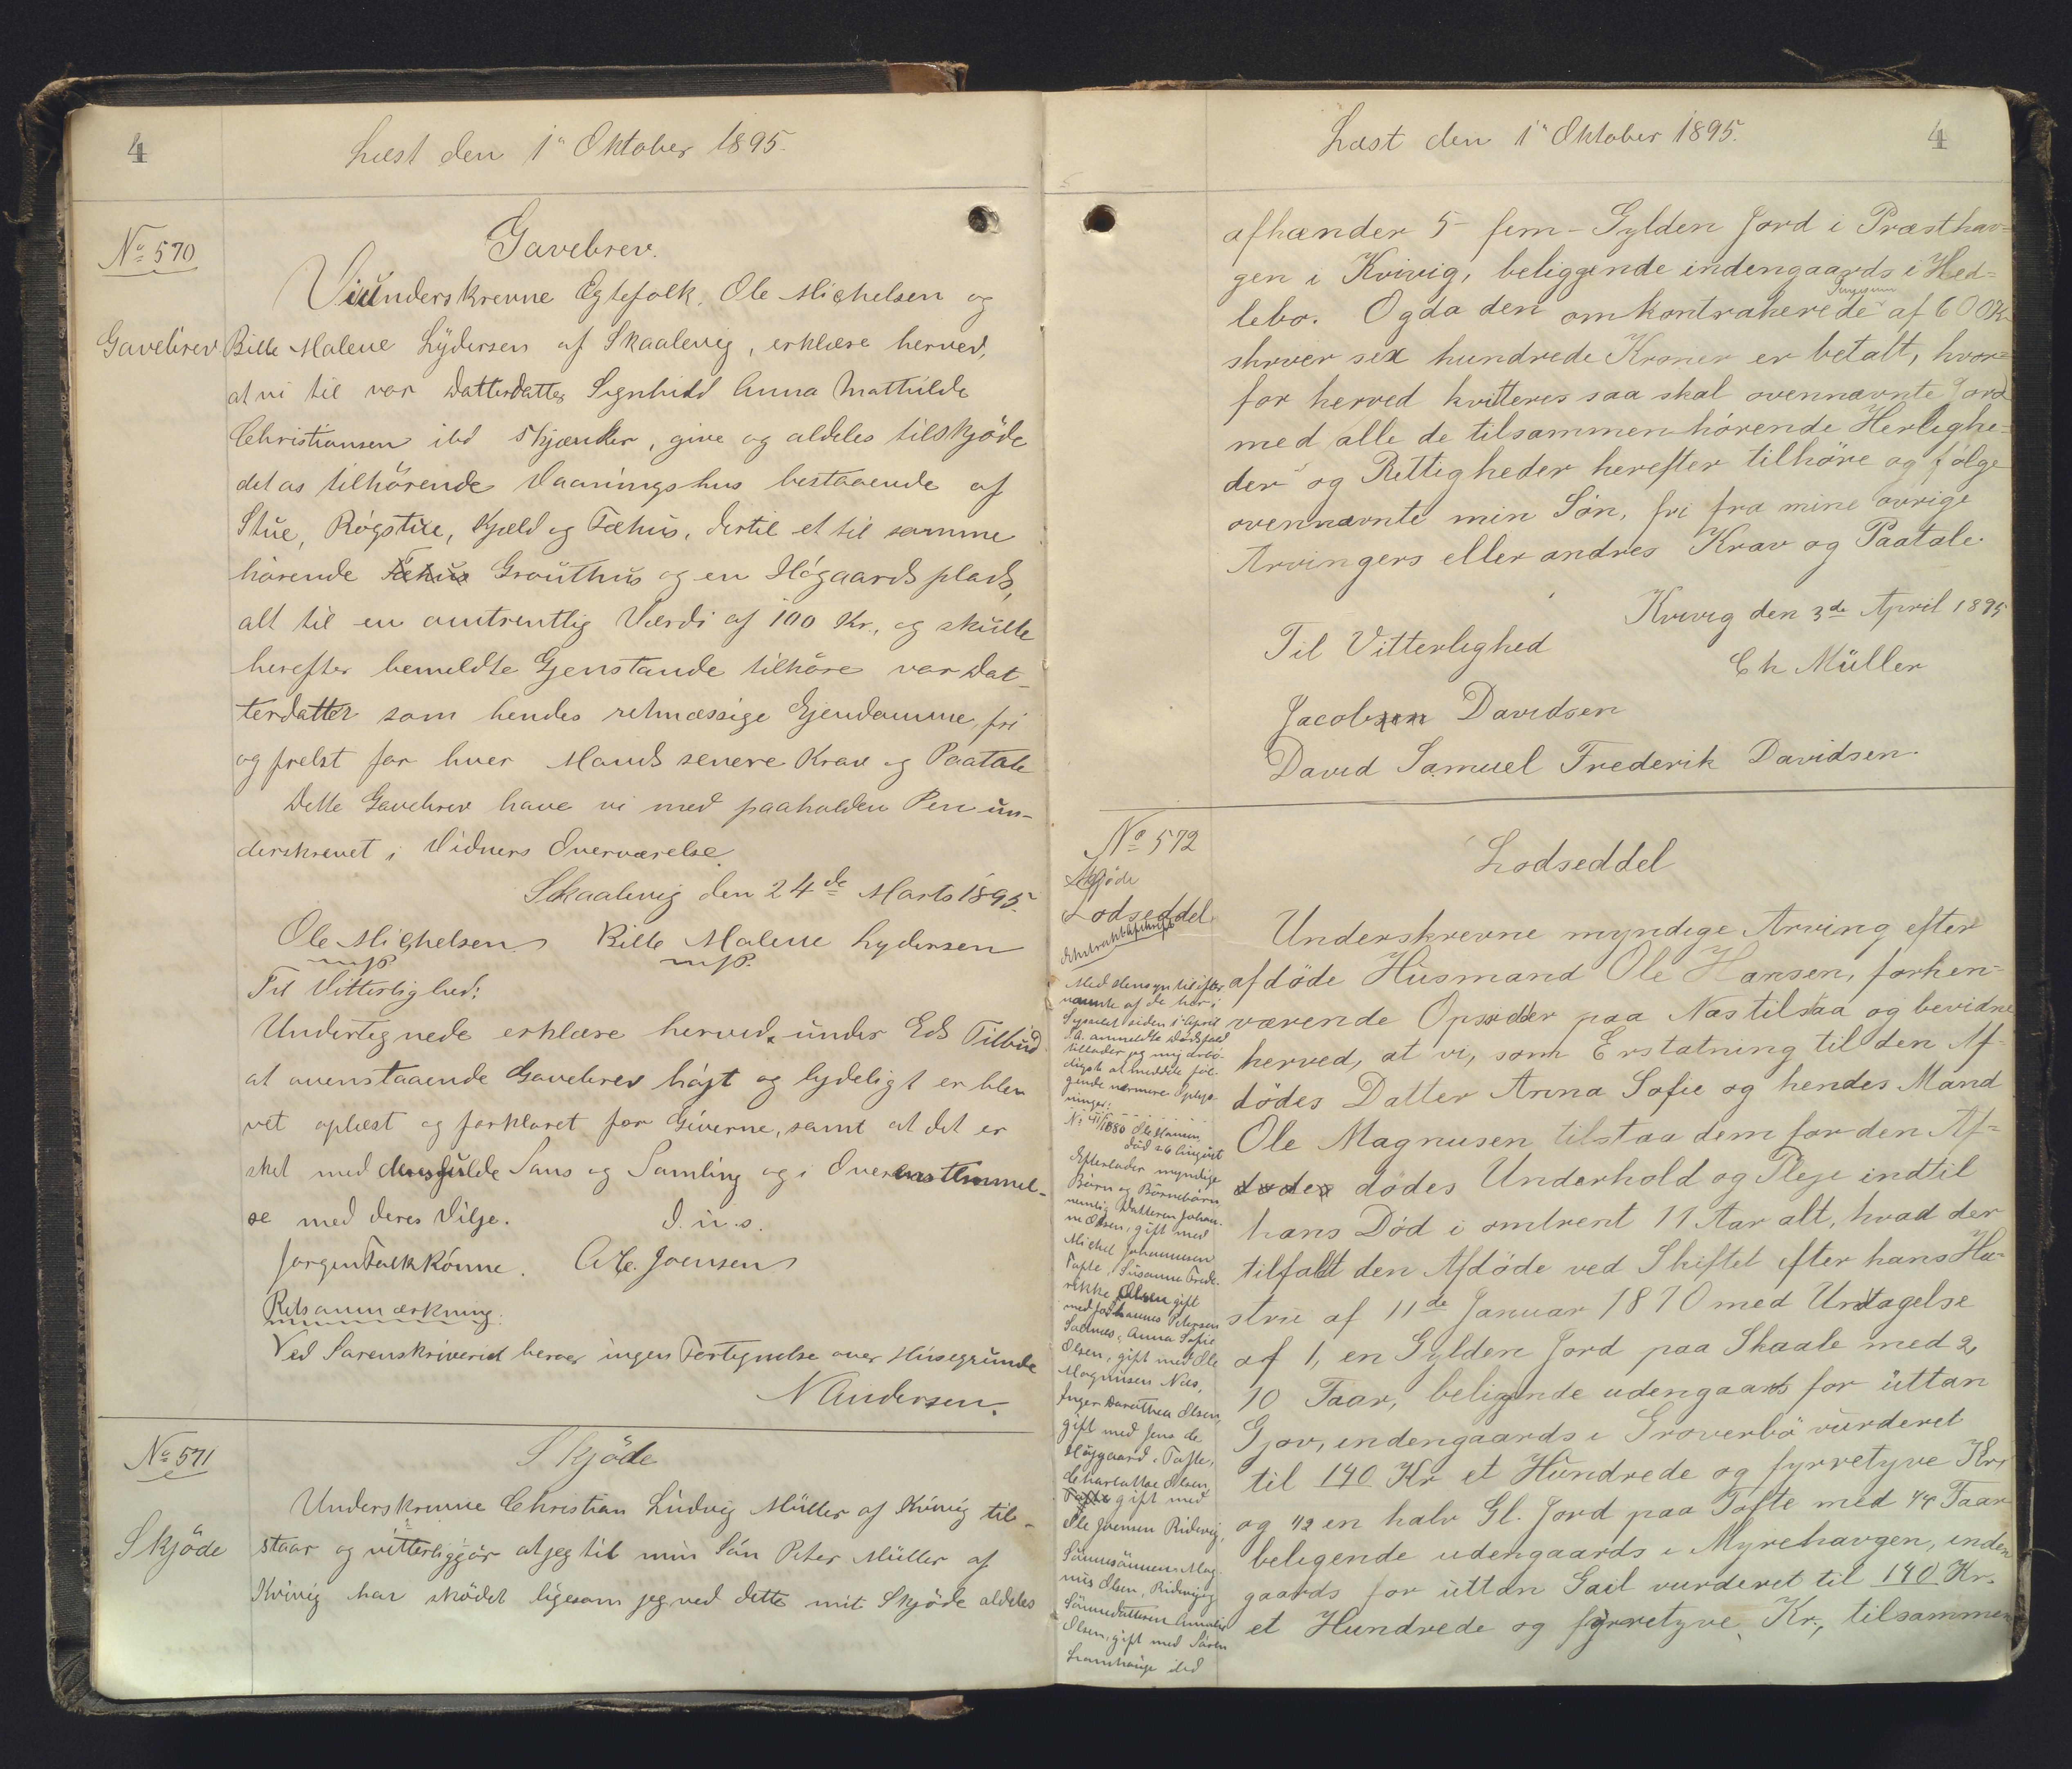 4
Læst den 1" Oktober 1895.
No 570
Gavebrev.
Vi underskrevne Egtefolk, Ole Michelsen og
Gavebrev
Bille Malene Lydersen af Skaalevig, erklære herved,
at vi til vor Datterdatter Signhild Anna Mathilde
Christiansen ibd skjænker, give og aldeles tilskjöde
det os tilhörende Vaaningshus bestaaende af
Stue, Rögstue, Kjeld og Fæhus, dertil et til samme
hörende Fæhus Grouthus og en Högaards plads,
alt til en omtrentlig Værdi af 100 Kr., og skulle
herefter bemeldte Gjenstande tilhöre vor Dat-
terdatter som hendes retmæssige Ejendomme, fri
og frelst for hver Mands senere Krav og Paatale
Dette Gavebrev have vi med paaholden Pen un-
derskrevet i Vidners Overværelse.
Skaalevig den 24de Marts 1895.
Ole Michelsen Bille Malene Lydersen
m/P m/P.
Til Vitterlighed:
Undertegnede erklære herved under Eds Tilbud
at ovenstaaende Gavebrev höjt og lydeligt er ble-
vet oplæst og forklaret for Giverne, samt at det er
sket med deres fulde Sans og Samling og i Overenstemmel-
se med deres Vilje. D. u. s.
Jorgen Falk Rönne. A. C. Joensen
Retsanmærkning:
Ved Sorenskriveriet haves ingen Fortegnelse over Husegrunde
N Andersen.
No 571
Skjöde
Skjöde
Underskrevne Christian Ludvig Müller af Kvivig til-
staar og vitterliggjör at jeg til min Sön Peter Müller af
Kvivig har sködet ligesom jeg ved dette mit Skjöde aldeles
Læst den 1" Oktober 1895.
4
afhænder 5 - fem - Gylden Jord i Præsthav-
gen i Kvivig, beliggende indengaards i Hed-
lebo. Og da den omkontraherede Penge sum af 600 Kr
skriver sex hundrede Kroner er betalt, hvor-
for herved kvitteres saa skal ovennævnte Jord
med alle de tilsammen hörende Herlighe-
der og Rettigheder herefter tilhöre og fölge
ovennævnte min Sön, fri fra mine övrige
Arvingers eller andres Krav og Paatale.
Kvivig den 3de April 1895
Til Vitterlighed Ch Müller
Jacobsen Davidsen
David Samuel Frederik Davidsen.
No 572
Skjöde
Lodseddel
Ekstraktafskrift
Lodseddel
Med Hensyn til efter-
nævnte af de her i
Sysselet siden 1 April
d.A. anmeldte Dødsfald
tillader jeg mig ærbö-
digst at meddele föl-
gende nærmere Oplys-
ninger:
No 41/1880 Ole Hansen,
död 26 August
Efterlader myndige
Börn og Börnebörn,
nemlig Datteren Johan-
ne Olsen, gift med
Michel Johannesen
Tofte, Susanne Frede-
rikke Olsen gift
med Johannes Petersen
Saltnes, Anna Sofie
Olsen, gift med Ole
Magnusen Næs,
Inger Dorothea Olsen,
gift med Jens de
Höjgaard i Tofte,
Charlotte Olsen
Tofte gift med
Ole Joensen Ridevig,
Sönnesönnen Mag-
nus Olsen, Ridevig og
Sönnedatteren Annalie
Olsen, gift med Sören
Lamhauge ibd
Underskrevne myndige Arving efter
afdöde Husmand Ole Hansen, forhen-
værende Opsidder paa Næs tilstaa og bevidne
herved, at vi, som Erstatning til den Af-
dödes Datter Anna Sofie og hendes Mand
Ole Magnusen tilstaa dem for den Af-
dødes dödes Underhold og Pleje indtil
hans Död i omtrent 11 Aar alt, hvad der
tilfaldt den Afdöde ved Skiftet efter hans Hu-
stru af 11de Januar 1870 med Undtagelse
af 1, en Gylden Jord paa Skaale med 2
10 Faar, beligende udengaards for uttan
Gjov, indengaards i Groverbö vurderet
til 140 Kr et Hundrede og fyrretyve Kr,
og 1/2 en halv Gl. Jord paa Tofte med 4 Faar
beligende udengaards i Myrehavgen, inden
gaards for uttan Gail vurderet til 140 Kr.
et Hundrede og fyrretyve Kr., tilsammen